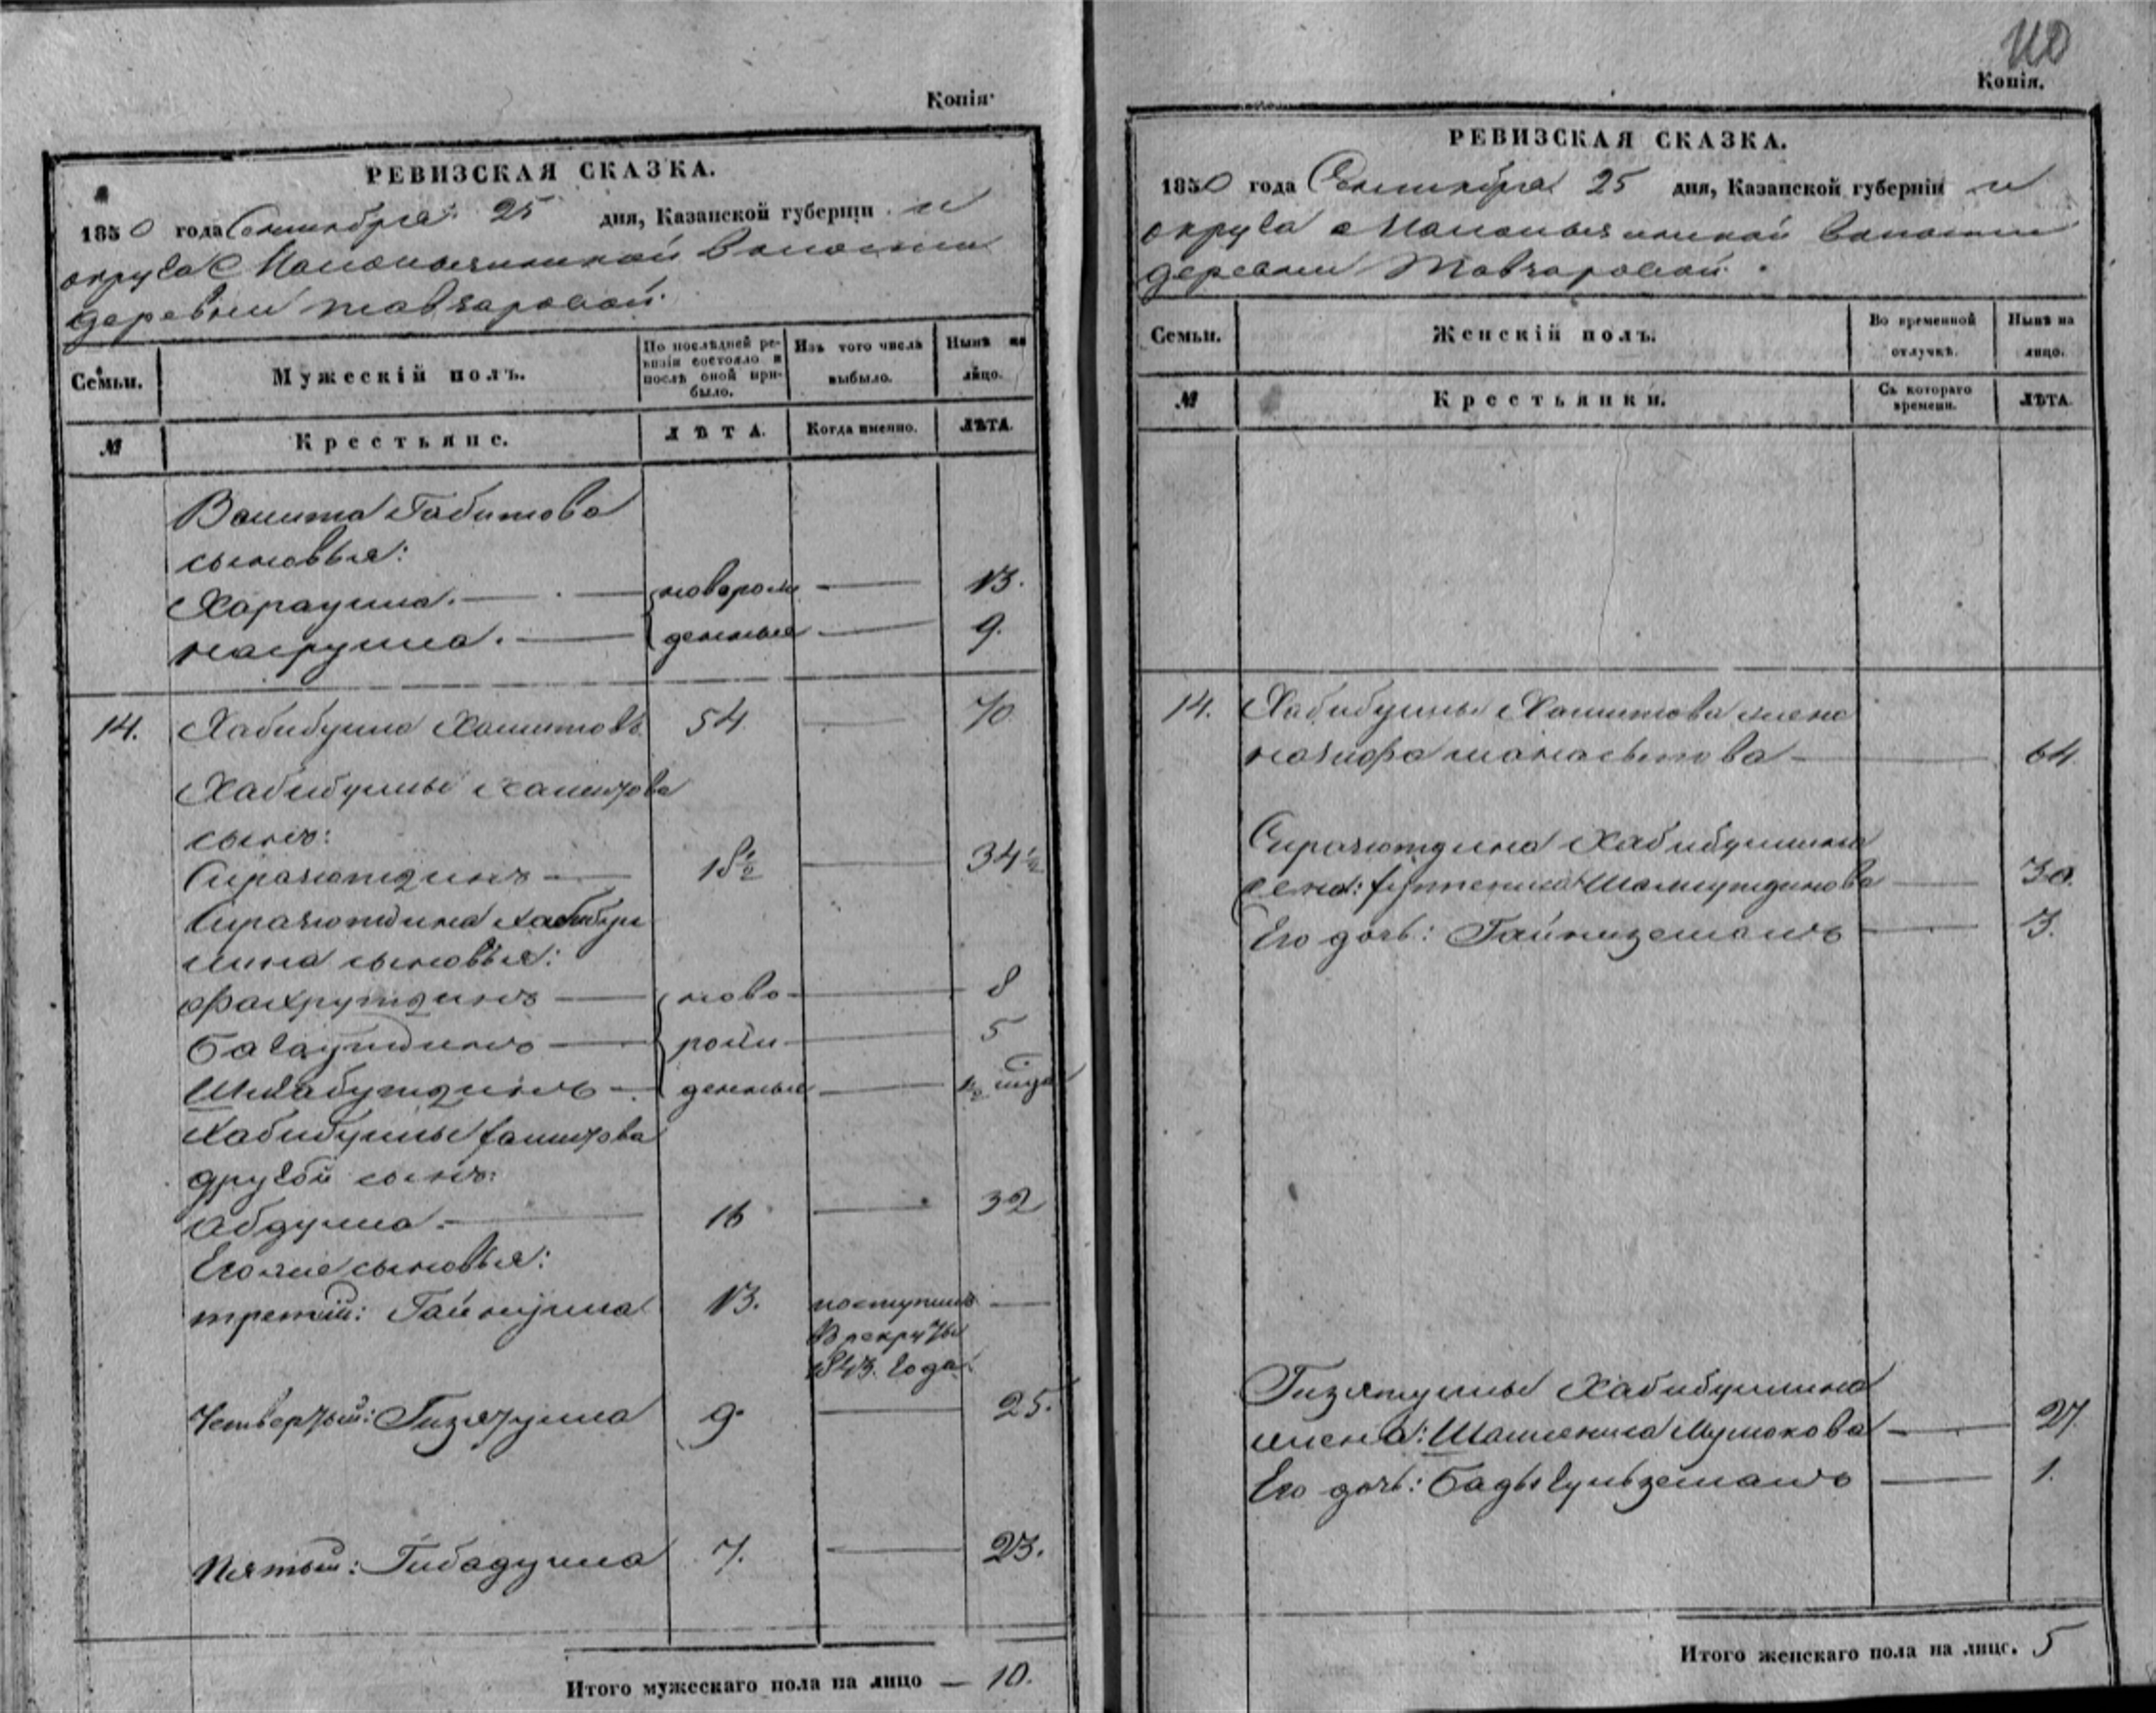 Копія·
РЕВИЗСКАЯ СКАЗКА.
1850 года Сентября 25 дня, Казанской губерніи и
округа волости
деревни Тавзаровой.
Семьи.
Мужескій полъ.
По послѣдней ревизіи состояло и послѣ оной прибыло.
Изъ того числа выбыло.
Нынѣ на лицо.
№
Крестьяне.
ЛѢТА.
Когда именно.
ЛѢТА.
Вашита Габитова
сыновья:
новорож 13.
денные 9.
14. Хабибулла Хашитовъ 54 70
Хабибуллы Хашитова
сынъ:
Сиразютдинъ 18½ 34½
Сиразютдина Хабибул
лина сыновья:
Фахрутдинъ ново 8
Багаутдинъ рожи 5
Шигабутдинъ денные ½ года
Хабибуллы Хашитова
другой сынъ:
Абдулла. 16 32
Его же сыновья:
третій: Гайнулла 13. поступилъ
в рекруты
1843. года
Четвертый: Гизятулла 9. 25.
Пятый: Гибадулла 7. 23.
Итого мужескаго пола на лицо — 10.
110
Копія.
РЕВИЗСКАЯ СКАЗКА.
1850 года Сентября 25 дня, Казанской губерніи и
округа волости
деревни Тавзаровой.
Семьи.
Женскій полъ.
Во временной отлучкѣ.
Нынѣ на лицо.
№
Крестьянки.
Съ котораго времени.
ЛѢТА.
14. Хабибуллы Хашитова жена
64
Сиразютдина Хабибуллина
жена: 30.
Его дочь: Гайниземанъ 3.
Гизятуллы Хабибуллина
жена: 27
Его дочь: Бадыгульземанъ 1.
Итого женскаго пола на лицо. 5